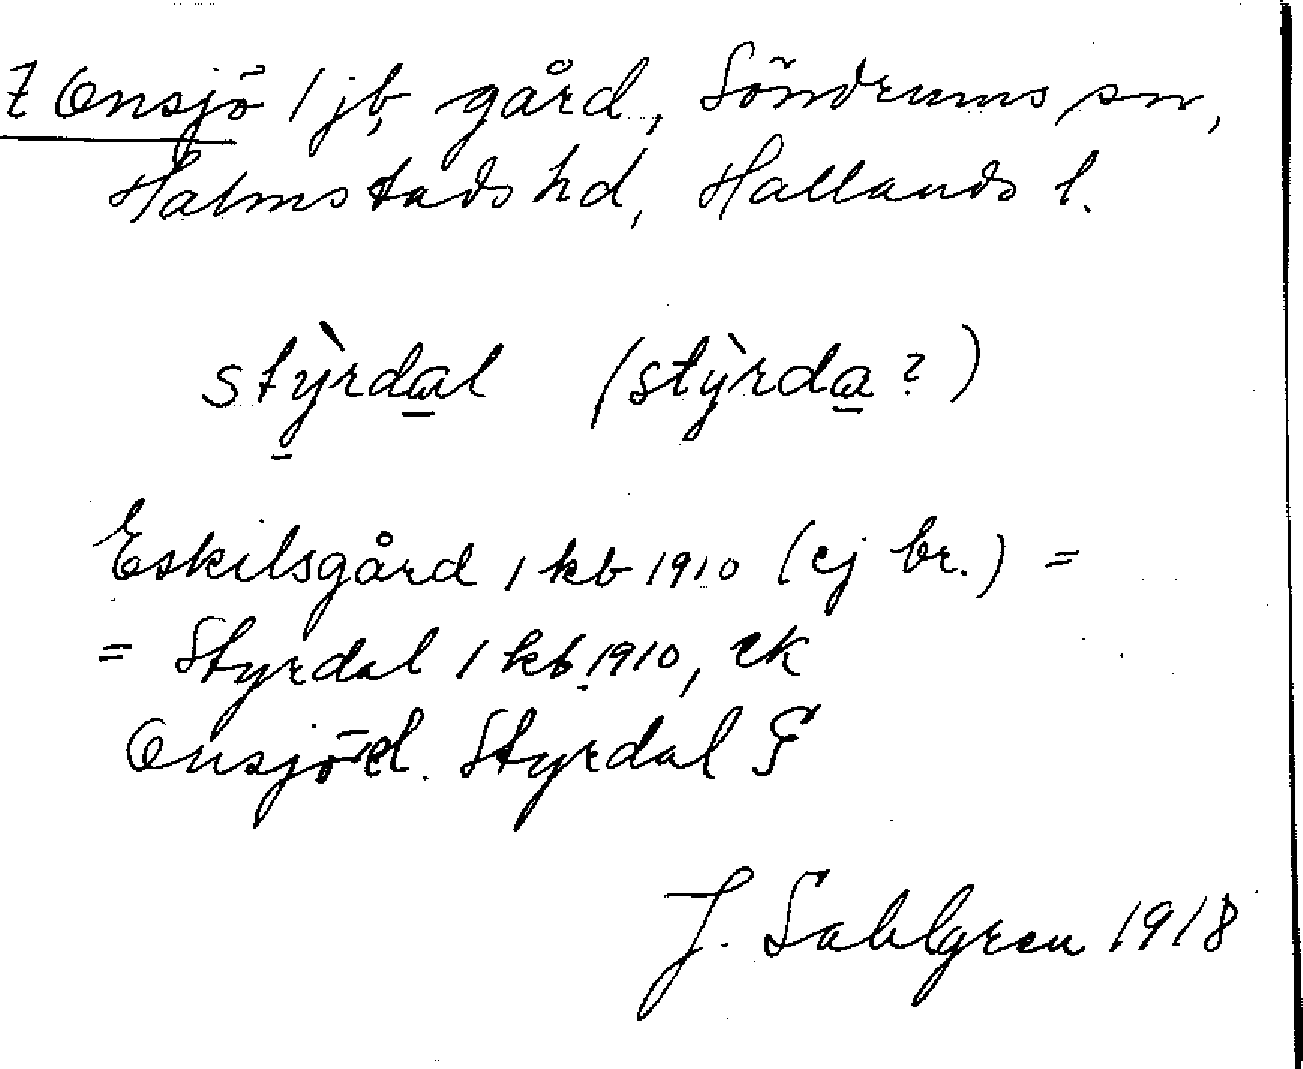 Z Onsjö 1 jb, gård, Söndrums sn,
Halmstads hd, Hallands l.
stỳrdal (stỳrda?)
Eskilsgård 1 kb 1910 (ej br.) =
= Styrdal 1 kb 1910, ek
Onsjö el. Styrdal G
J. Sahlgren 1918